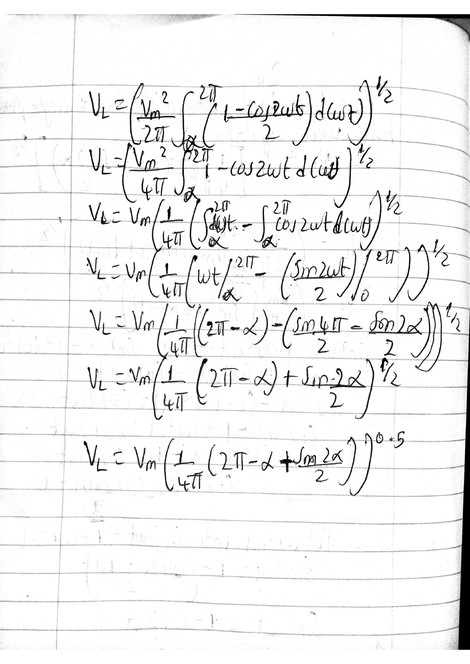 V_L = (V_m²/2π ∫_α^2π (1-cos2wt/2) d(wt))^1/2
V_L = (V_m²/4π ∫_α^2π 1-cos2wt d(wt))^1/2
V_L = V_m (1/4π (∫_α^2π dwt - ∫_α^2π cos2wt d(wt))^1/2
V_L = V_m (1/4π (wt/_α^2π - (Sin2wt/2)/_0^2π))^1/2
V_L = V_m (1/4π ((2π-α) - (Sin4π/2 - Sin2α/2)))^1/2
V_L = V_m (1/4π (2π-α) + Sin2α/2)^1/2
V_L = V_m (1/4π (2π-α + Sin2α/2))^0.5